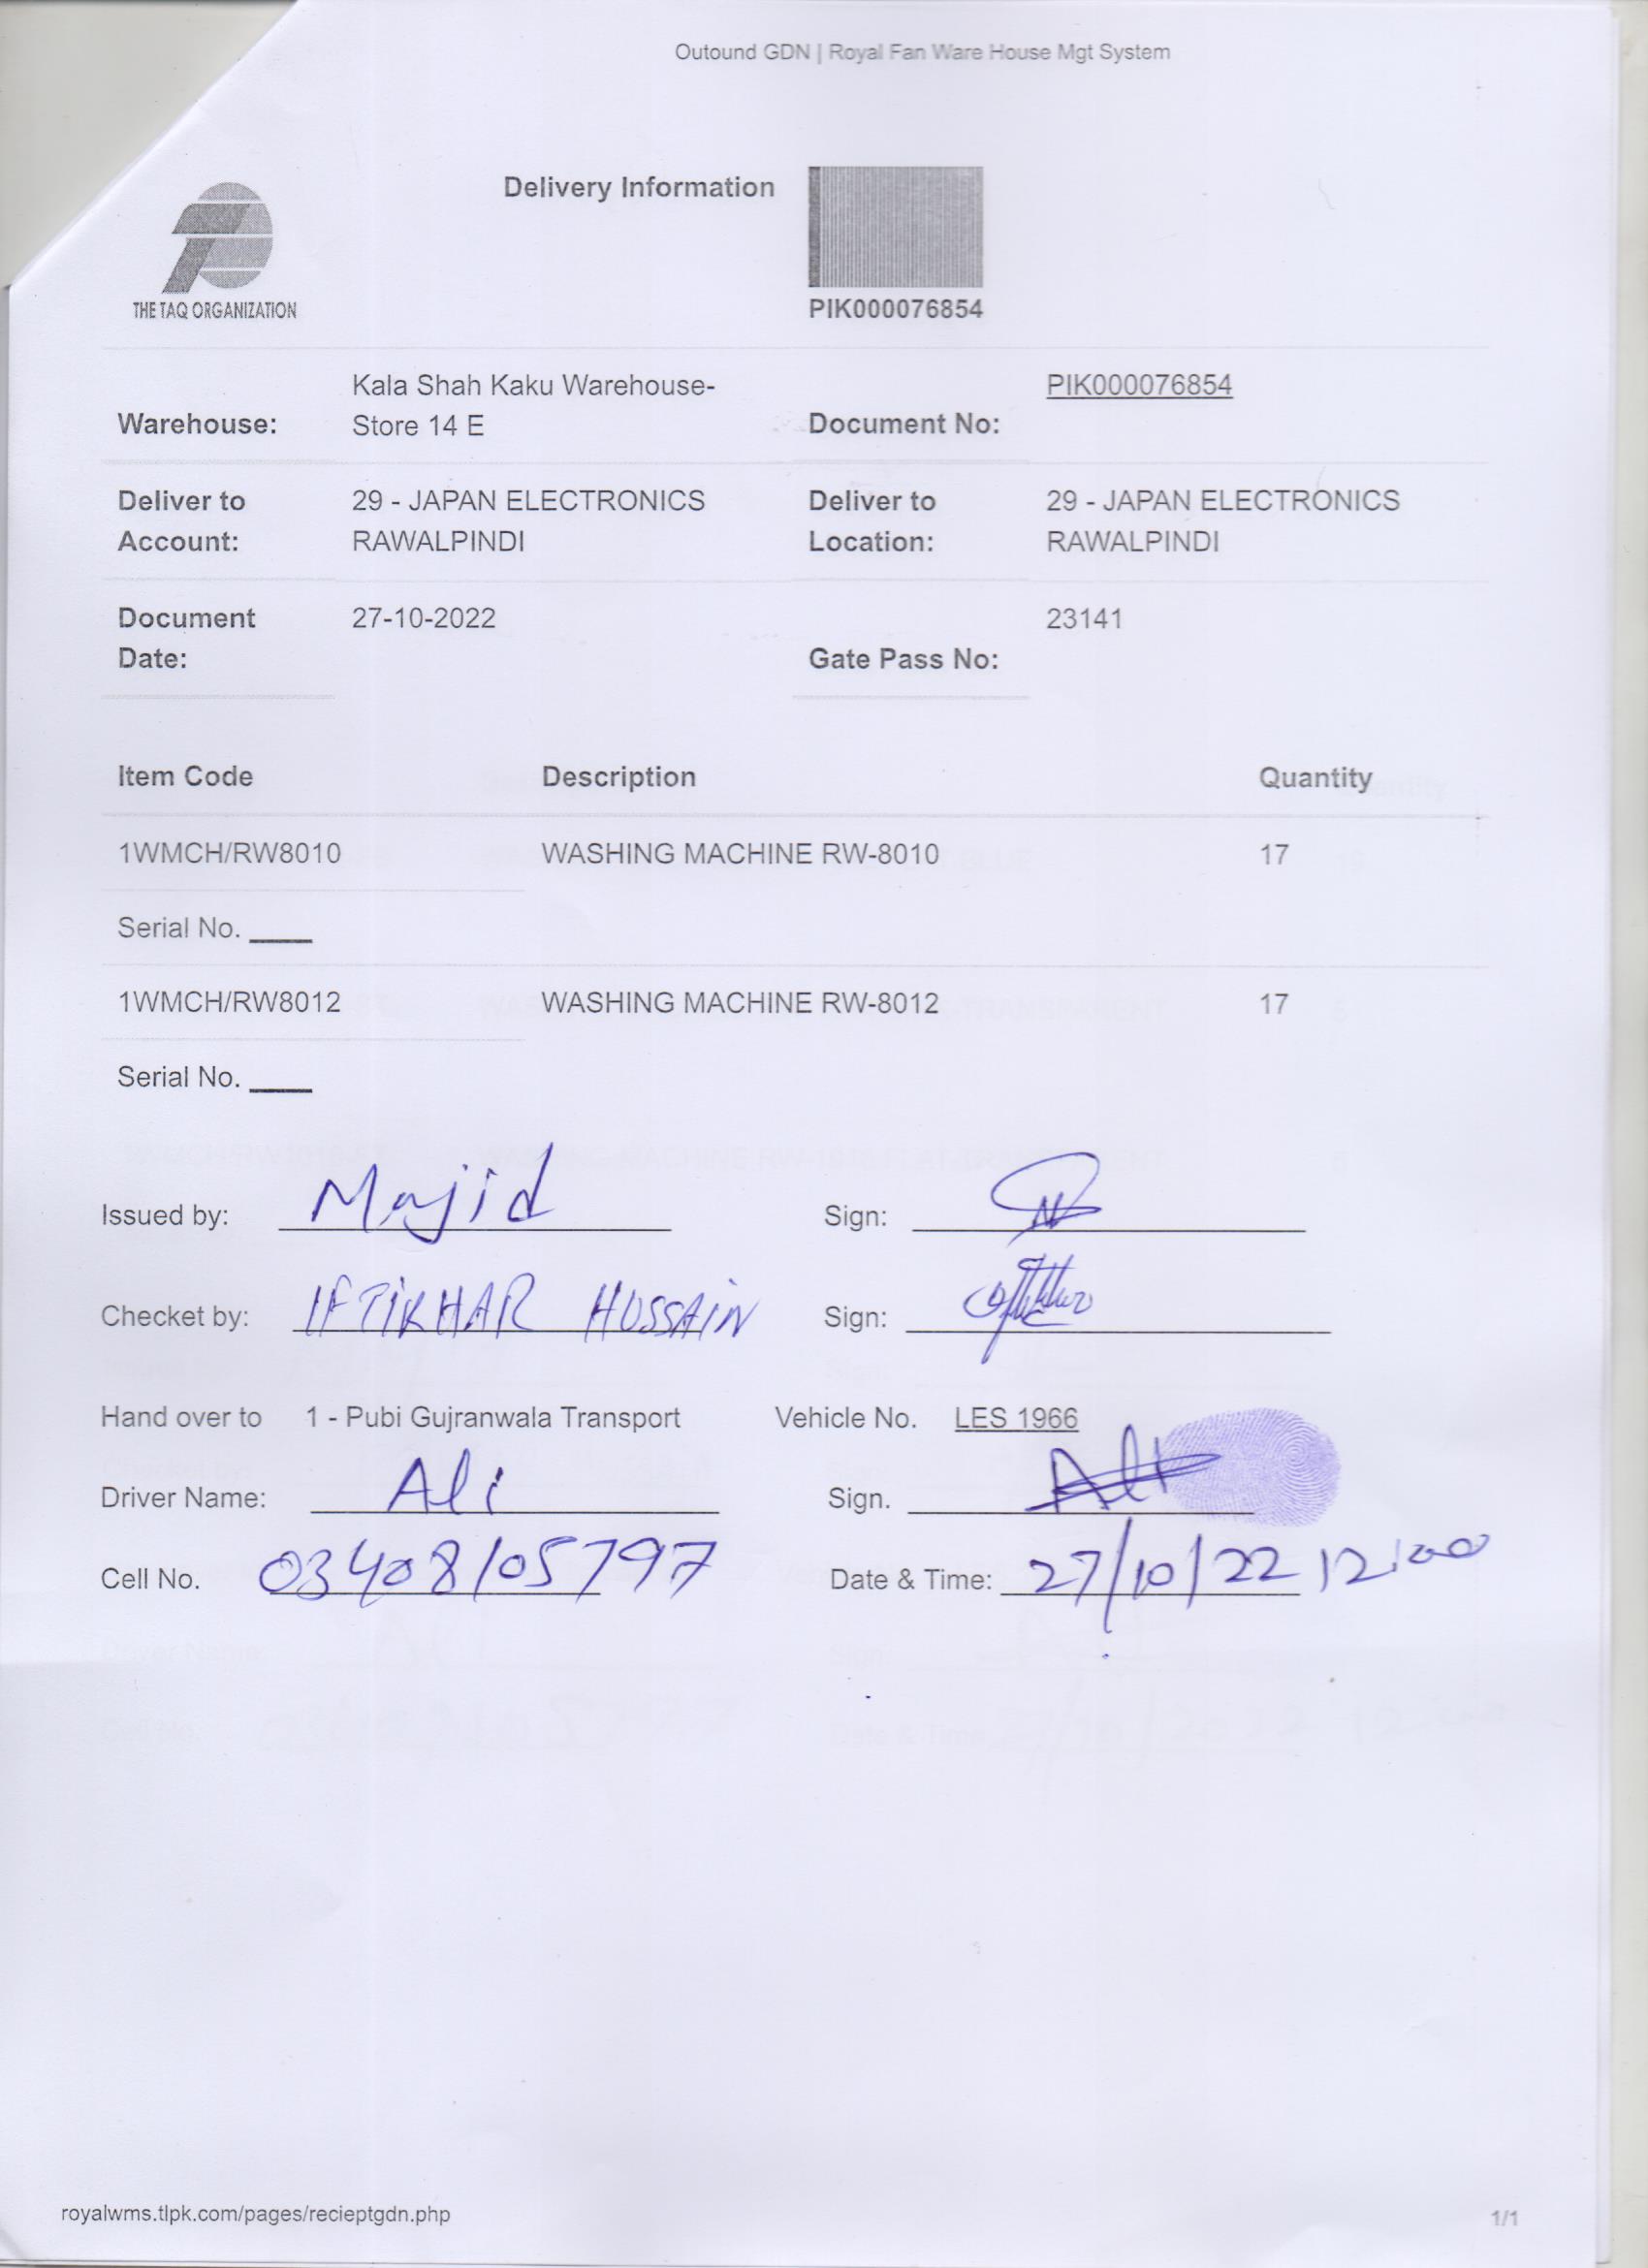 Outound GDN | Royal Fan Ware House Mgt System
Delivery Information
THE TAQ ORGANIZATION
PIK000076854
Warehouse: Kala Shah Kaku Warehouse-
Store 14 E
Document No: PIK000076854
Deliver to Account: 29 - JAPAN ELECTRONICS
RAWALPINDI
Deliver to Location: 29 - JAPAN ELECTRONICS
RAWALPINDI
Document Date: 27-10-2022
Gate Pass No: 23141
Item Code Description Quantity
1WMCH/RW8010 WASHING MACHINE RW-8010 17
Serial No. ____
1WMCH/RW8012 WASHING MACHINE RW-8012 17
Serial No. ____
Issued by: Majid Sign:
Checket by: IFTIKHAR HUSSAIN Sign:
Hand over to 1 - Pubi Gujranwala Transport Vehicle No. LES 1966
Driver Name: Ali Sign. Ali
Cell No. 03408105797 Date & Time: 27/10/22 12:00
royalwms.tlpk.com/pages/recieptgdn.php 1/1